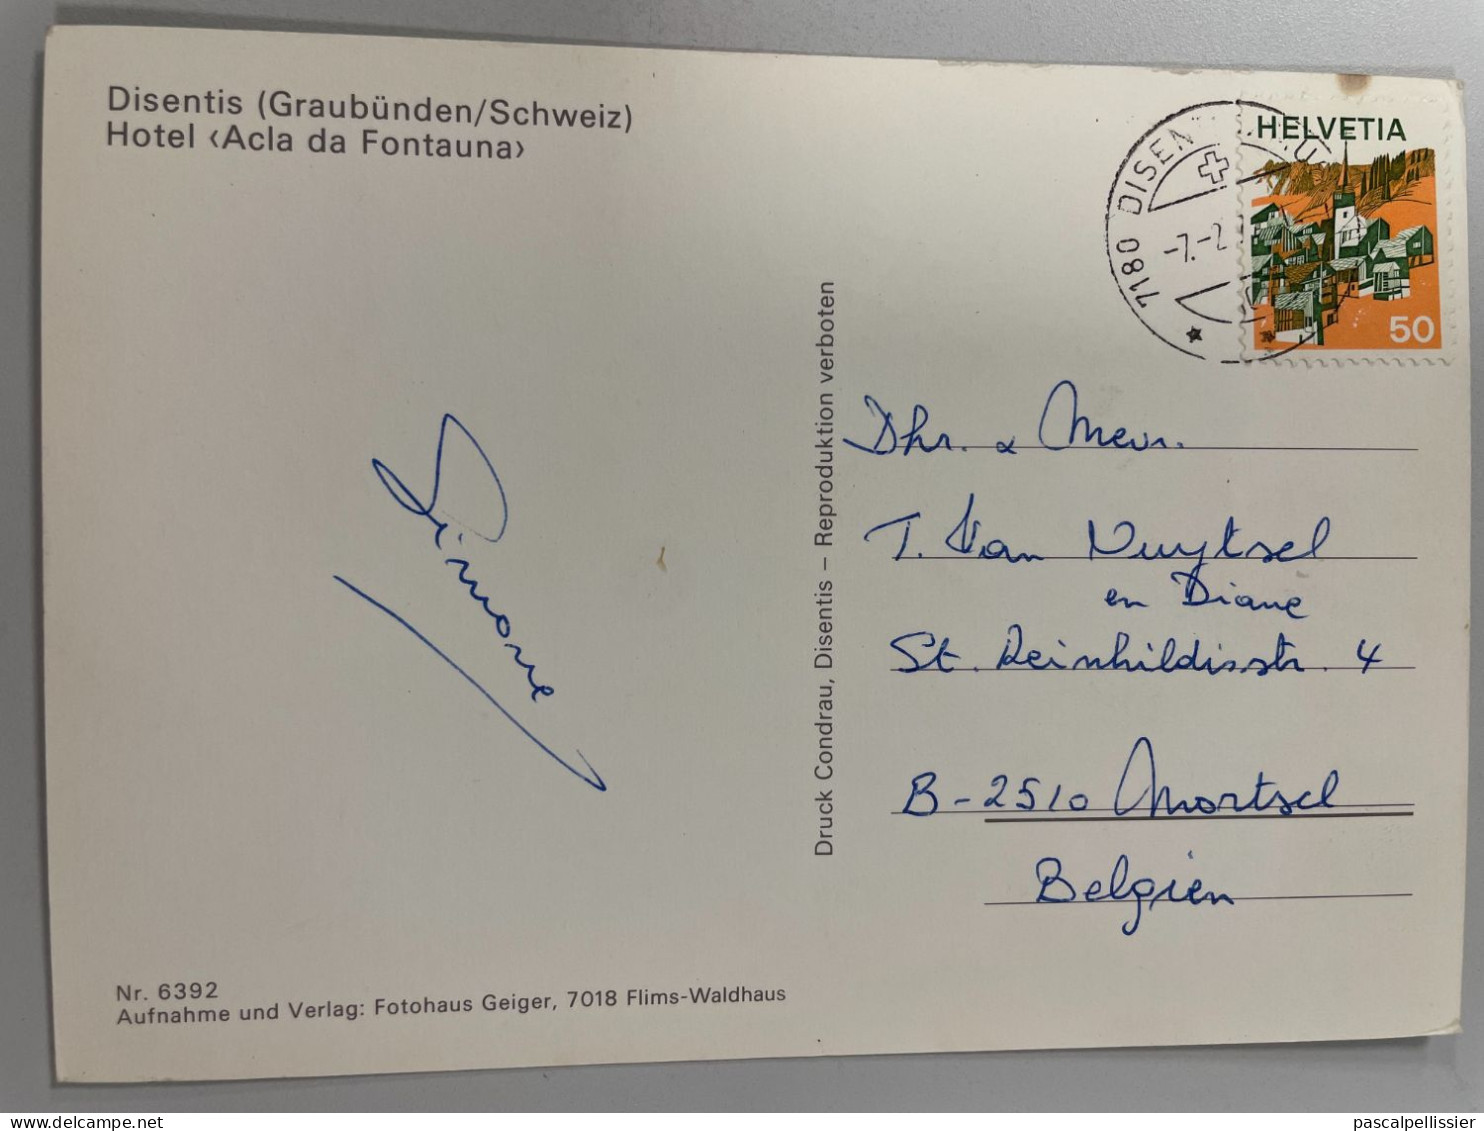 Disentis (Graubünden/Schweiz)
Hotel ‹Acla da Fontauna›
Simone
Nr. 6392
Aufnahme und Verlag: Fotohaus Geiger, 7018 Flims-Waldhaus
Druck Condrau, Disentis – Reproduktion verboten
7180 DISENT
-7.-2
HELVETIA
50
Dhr. & Mevr.
T. Van Nuytsel
en Diane
St. Reinhildisstr. 4
B-2510 Mortsel
Belgien
www.delcampe.net
pascalpellissier